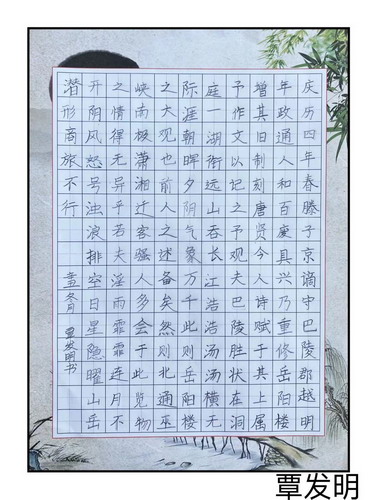 庆历四年春滕子京谪守巴陵郡越明
年政通人和百废具兴乃重修岳阳楼
增其旧制刻唐贤今人诗赋于其上属
予作文以记之予观夫巴陵胜状在洞
庭一湖衔远山吞长江浩浩汤汤横无
际涯朝晖夕阴气象万千此则岳阳楼
之大观也前人之述备矣然则北通巫
峡南极潇湘迁客骚人多会于此览物
之情得无异乎若夫淫雨霏霏连月不
开阴风怒号浊浪排空日星隐曜山岳
潜形商旅不行
冬月
覃发明书
覃发明